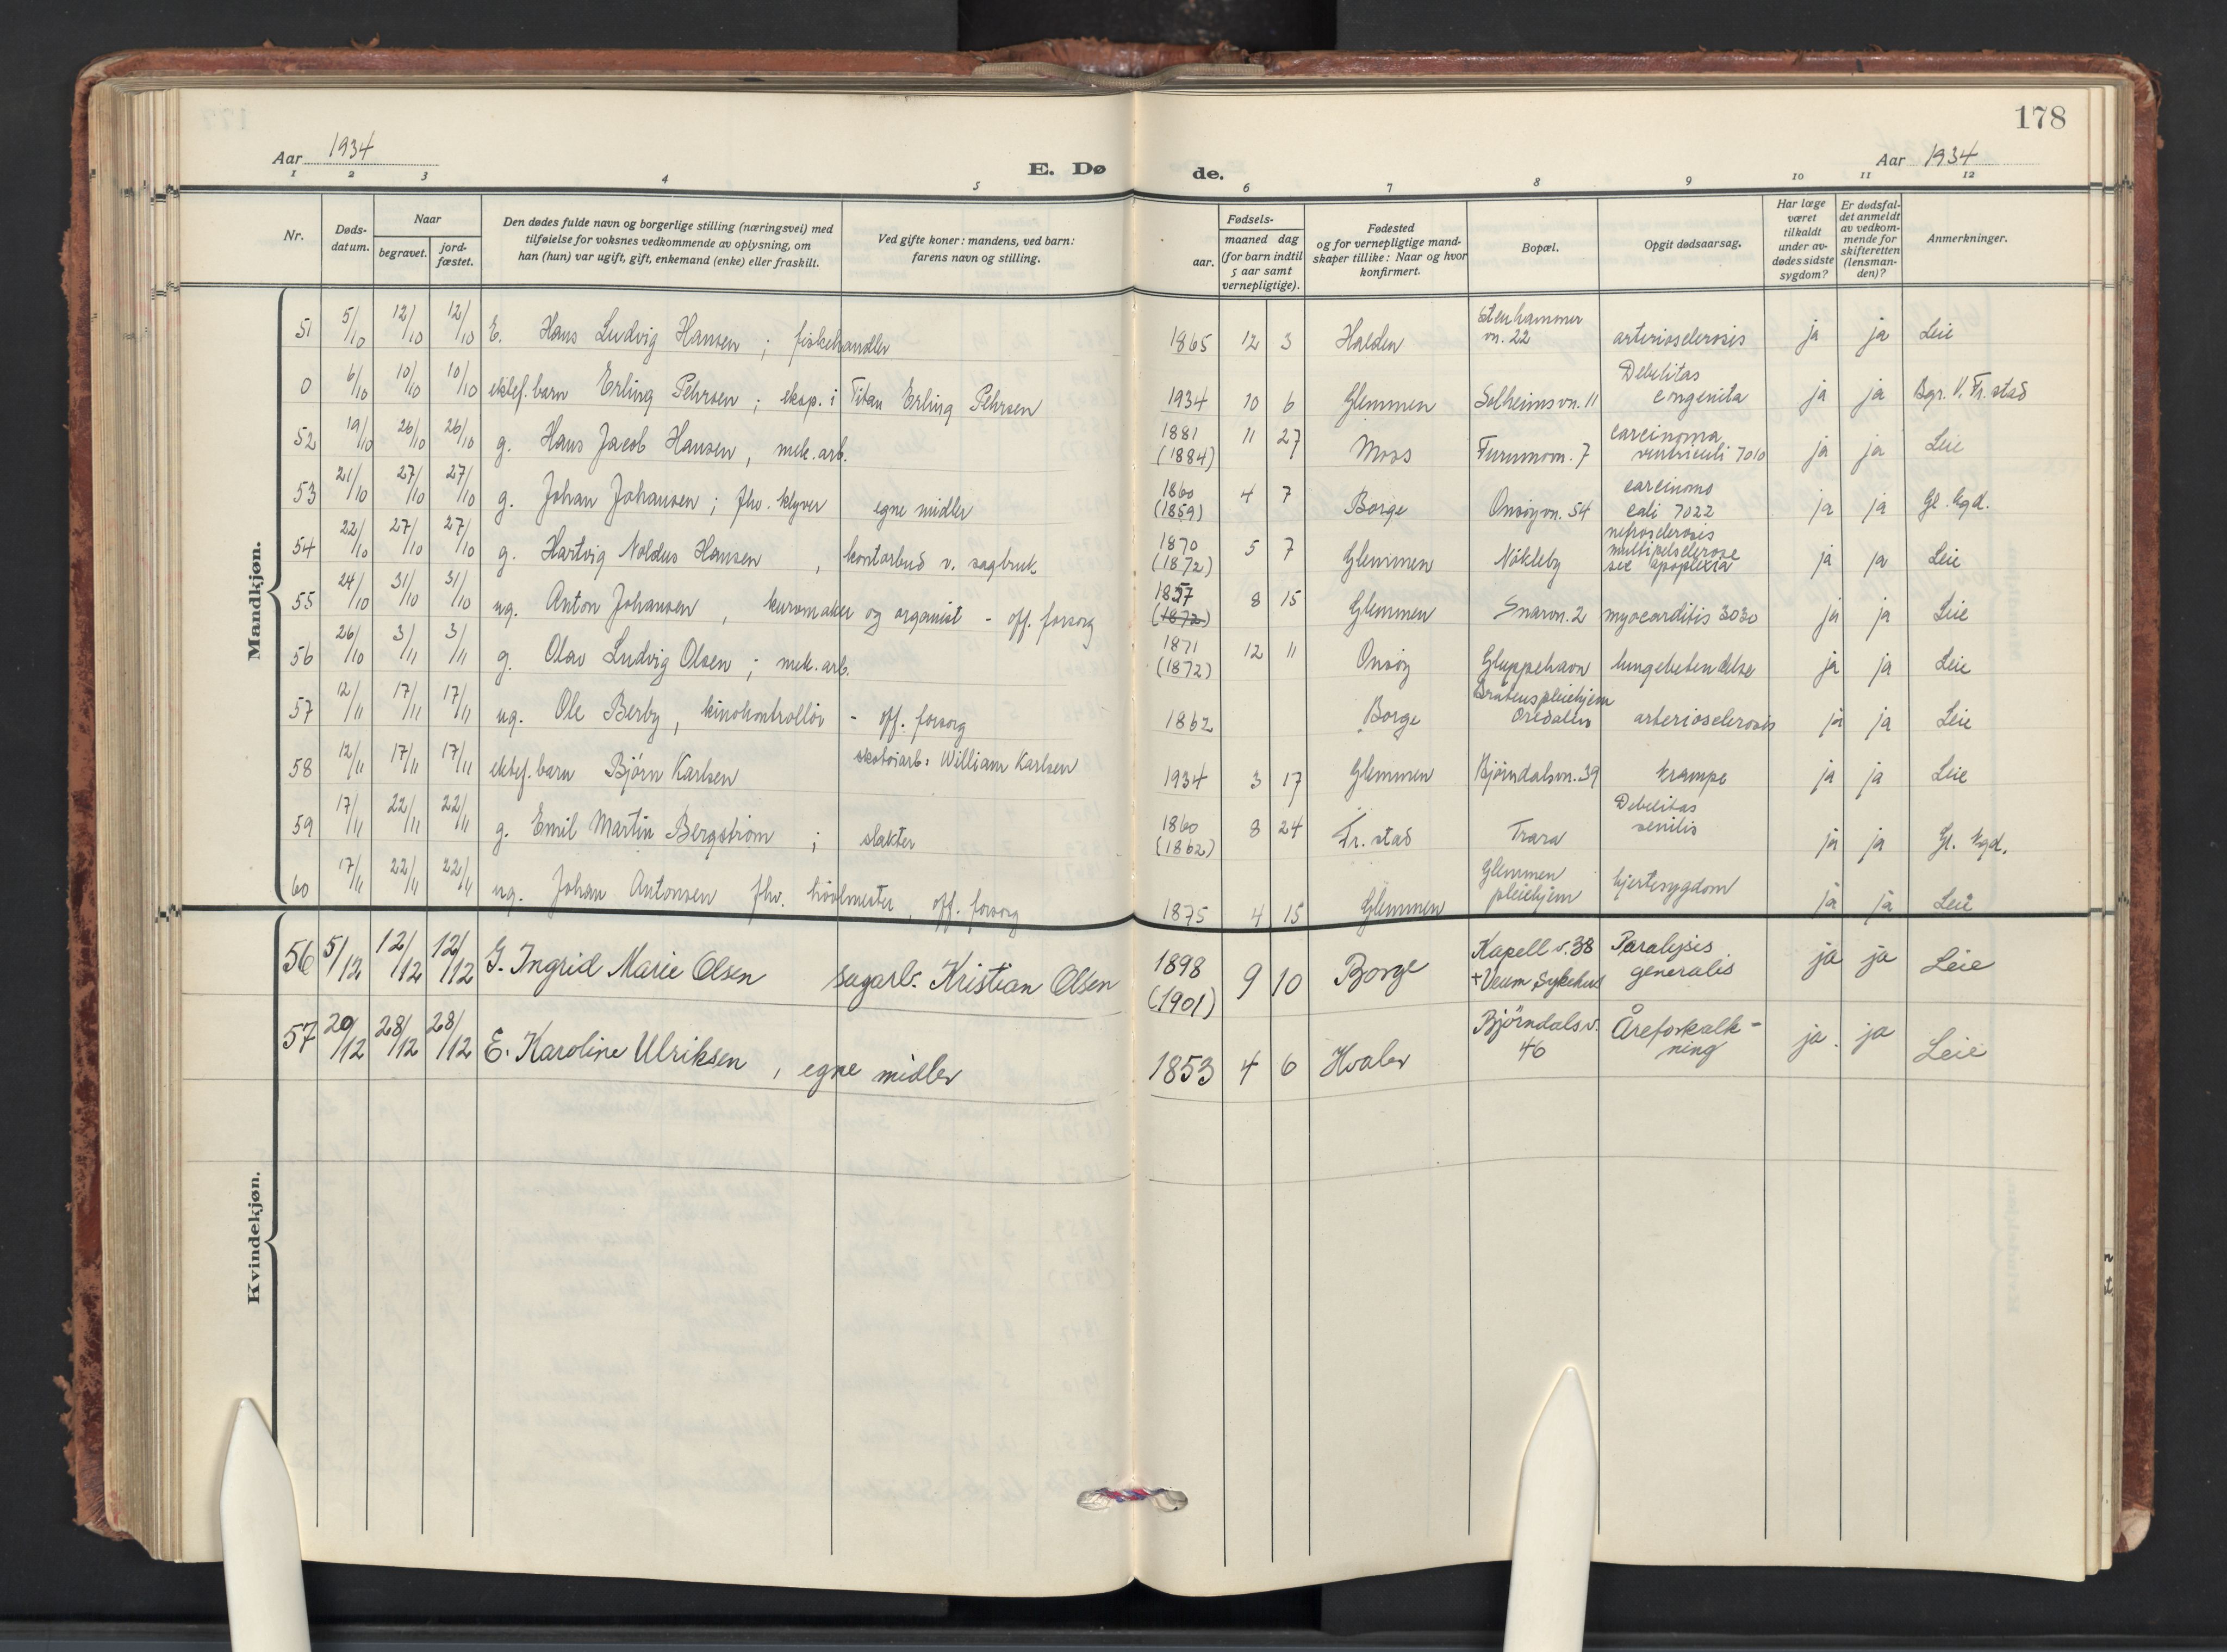 178
Aar 1934 E. Dø de. Aar 1934
1 2 3 4 5 6 7 8 9 10 11 12
Nr. Døds-datum. Naar begravet. jord-fæstet. Den dødes fulde navn og borgerlige stilling (næringsvei) med tilføielse for voksnes vedkommende av oplysning, om han (hun) var ugift, gift, enkemand (enke) eller fraskilt. Ved gifte koner: mandens, ved barn: farens navn og stilling. Fødsels- aar. maaned dag (for barn indtil 5 aar samt vernepligtige). Fødested og for vernepligtige mand-skaper tillike: Naar og hvor konfirmert. Bopæl. Opgit dødsaarsag. Har læge været tilkaldt under av-dødes sidste sygdom? Er dødsfal-det anmeldt av vedkom-mende for skifteretten (lensman-den)? Anmerkninger.
Mandkjøn.
51 5/10 12/10 12/10 E. Hans Ludvig Hansen ; fiskehandler 1865 12 3 Halden Stenhammer vn. 22 arteriosclerosis ja ja Leie
0 6/10 10/10 10/10 ektef. barn Erling Pehrsen ; eksp. i Titan Erling Pehrsen 1934 10 6 Glemmen Solheimsvn. 11 Debilitas congenita ja ja Bgr. V. Fr.stad
52 19/10 26/10 26/10 g. Hans Jacob Hansen, mek. arb. 1881 (1884) 11 27 Moss Furumovn. 7 carcinoma ventriculi 7010 ja ja Leie
53 21/10 27/10 27/10 g. Johan Johansen ; fhv. klyver egne midler 1860 (1859) 4 7 Borge Onsøyvn. 54 carcinoma coli 7022 ja ja Gl. kgd.
54 22/10 27/10 27/10 g. Hartvig Noldus Hansen , kontorbud v. sagbruk 1870 (1872) 5 7 Glemmen Nökleby nefrosclerosis multipelsclerose sec apoplexia ja ja Leie
55 24/10 31/10 31/10 ug. Anton Johansen , kurvmaker og organist - off. forsorg 1857 (1872) 8 15 Glemmen Snarvn. 2 myocarditis 3030 ja ja Leie
56 26/10 3/11 3/11 g. Olav Ludvig Olsen ; mek. arb. 1871 (1872) 12 11 Onsöy Gluppehavn lungebetendelse ja ja Leie
57 12/11 17/11 17/11 ug. Ole Berby, kinokontrollør - off. forsorg 1862 Borge Bråtens pleiehjem Oredalen arteriosclerosis ja ja Leie
58 12/11 17/11 17/11 ektef. barn Björn Karlsen skotöiarb: William Karlsen 1934 3 17 Glemmen Björndalsvn. 39 krampe ja ja Leie
59 17/11 22/11 22/11 g. Emil Martin Bergström ; slakter 1860 (1862) 8 24 Fr.stad Trara Debilitas senilis ja ja Gl. kgd.
60 17/11 22/11 22/11 ug. Johan Antonsen fhv. hövlmester, off. forsorg 1875 4 15 Glemmen Glemmen pleiehjem hjertesygdom ja ja Leie
Kvindekjøn.
56 5/12 12/12 12/12 G. Ingrid Marie Olsen sagarb. Kristian Olsen 1898 (1901) 9 10 Borge Kapell v. 38 + Veum Sykehus Paralysis generalis ja ja Leie
57 20/12 28/12 28/12 E. Karoline Ulriksen , egne midler 1853 4 6 Hvaler Björndalsv. 46 Åreforkalk-ning ja. ja Leie